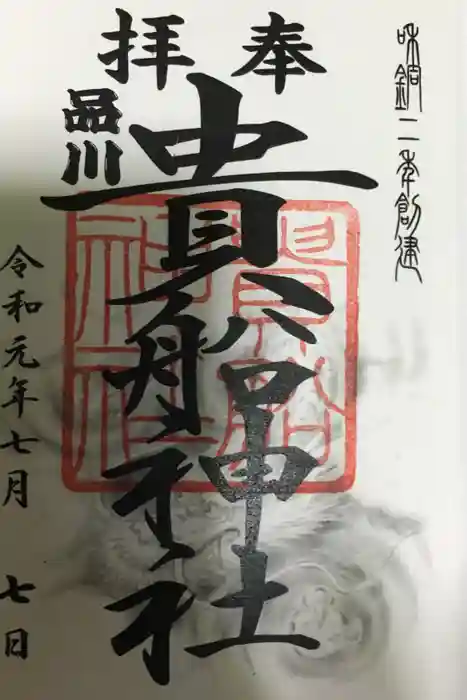 和銅二年創建
奉拝
品川
貴船神社
貴船
神社
令和元年七月 七日